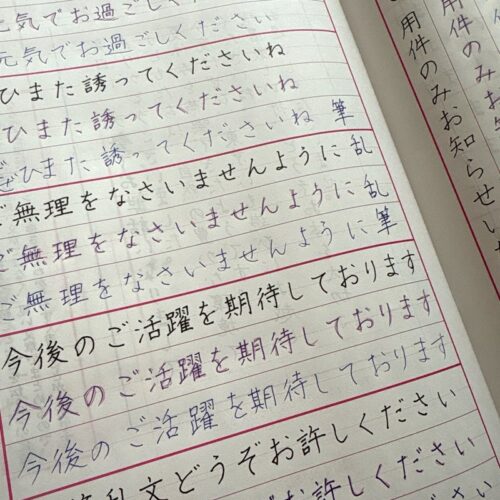 元気でお過ごしくださ
元気でお過ごしください
ひまた誘ってくださいね
ひまた誘ってくださいね
ぜひまた誘ってくださいね 筆
ご無理をなさいませんように 乱
ご無理をなさいませんように 乱
ご無理をなさいませんように 筆
今後のご活躍を期待しております
今後のご活躍を期待しております
今後のご活躍を期待しております
乱文どうぞお許しください
お許しください
用件のみお知らせい
のみお知